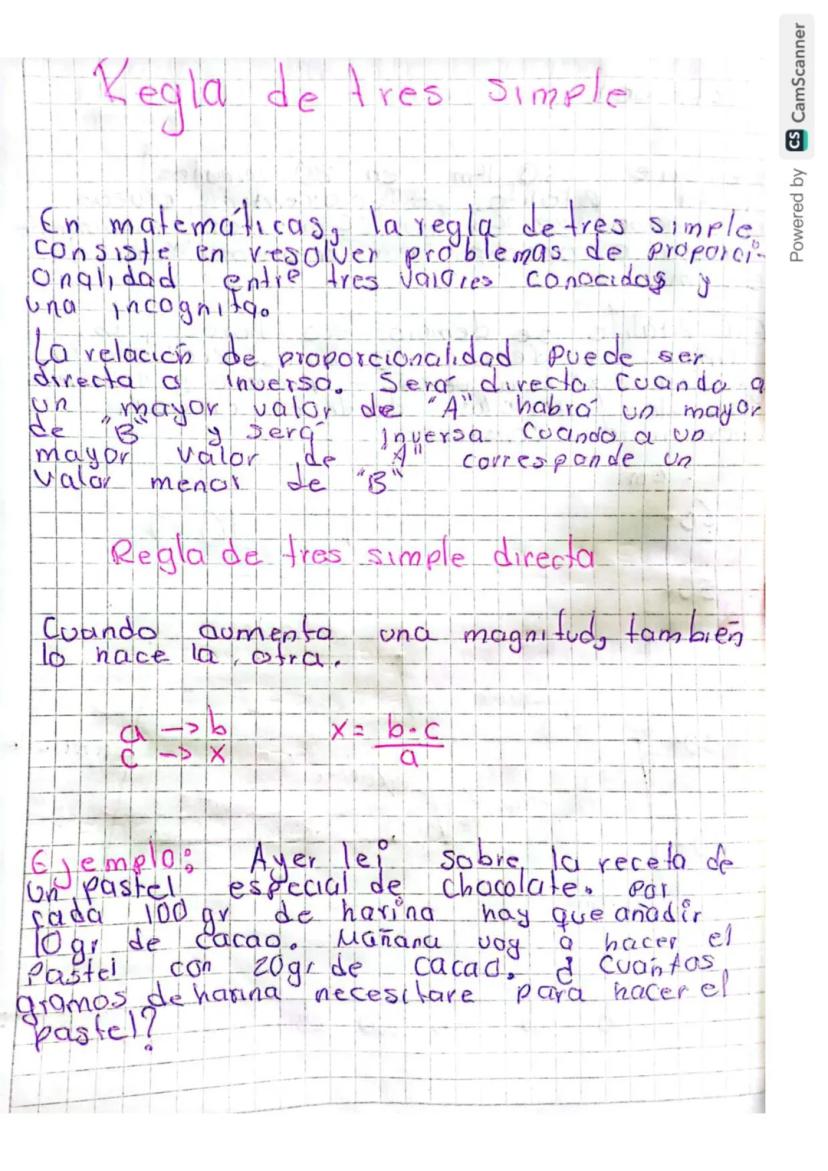 Regla de tres simple
En matemáticas, la regla de tres simple
consiste en resolver problemas de proporci-
onalidad entre tres valores conocidos y
una incognita.
La relación de proporcionalidad puede ser
directa o inversa. Será directa cuando a
un mayor valor de "A" habrá un mayor
de "B" y será inversa cuando, a un
mayor valor de "A" corresponde un
valor menor de "B"
Regla de tres simple directa
Cuando aumenta una magnitud, también
lo hace la otra.
a -> b
c -> x
x = b·c
a
Ejemplo: Ayer lei sobre la receta de
un pastel especial de chocolate. Por
cada 100 gr de harina hay que añadir
10 gr de cacao. Mañana voy a hacer el
pastel con 20gr de cacao. ¿Cuantos
gramos de harina necesitare para hacer el
pastel?
Powered by CS CamScanner